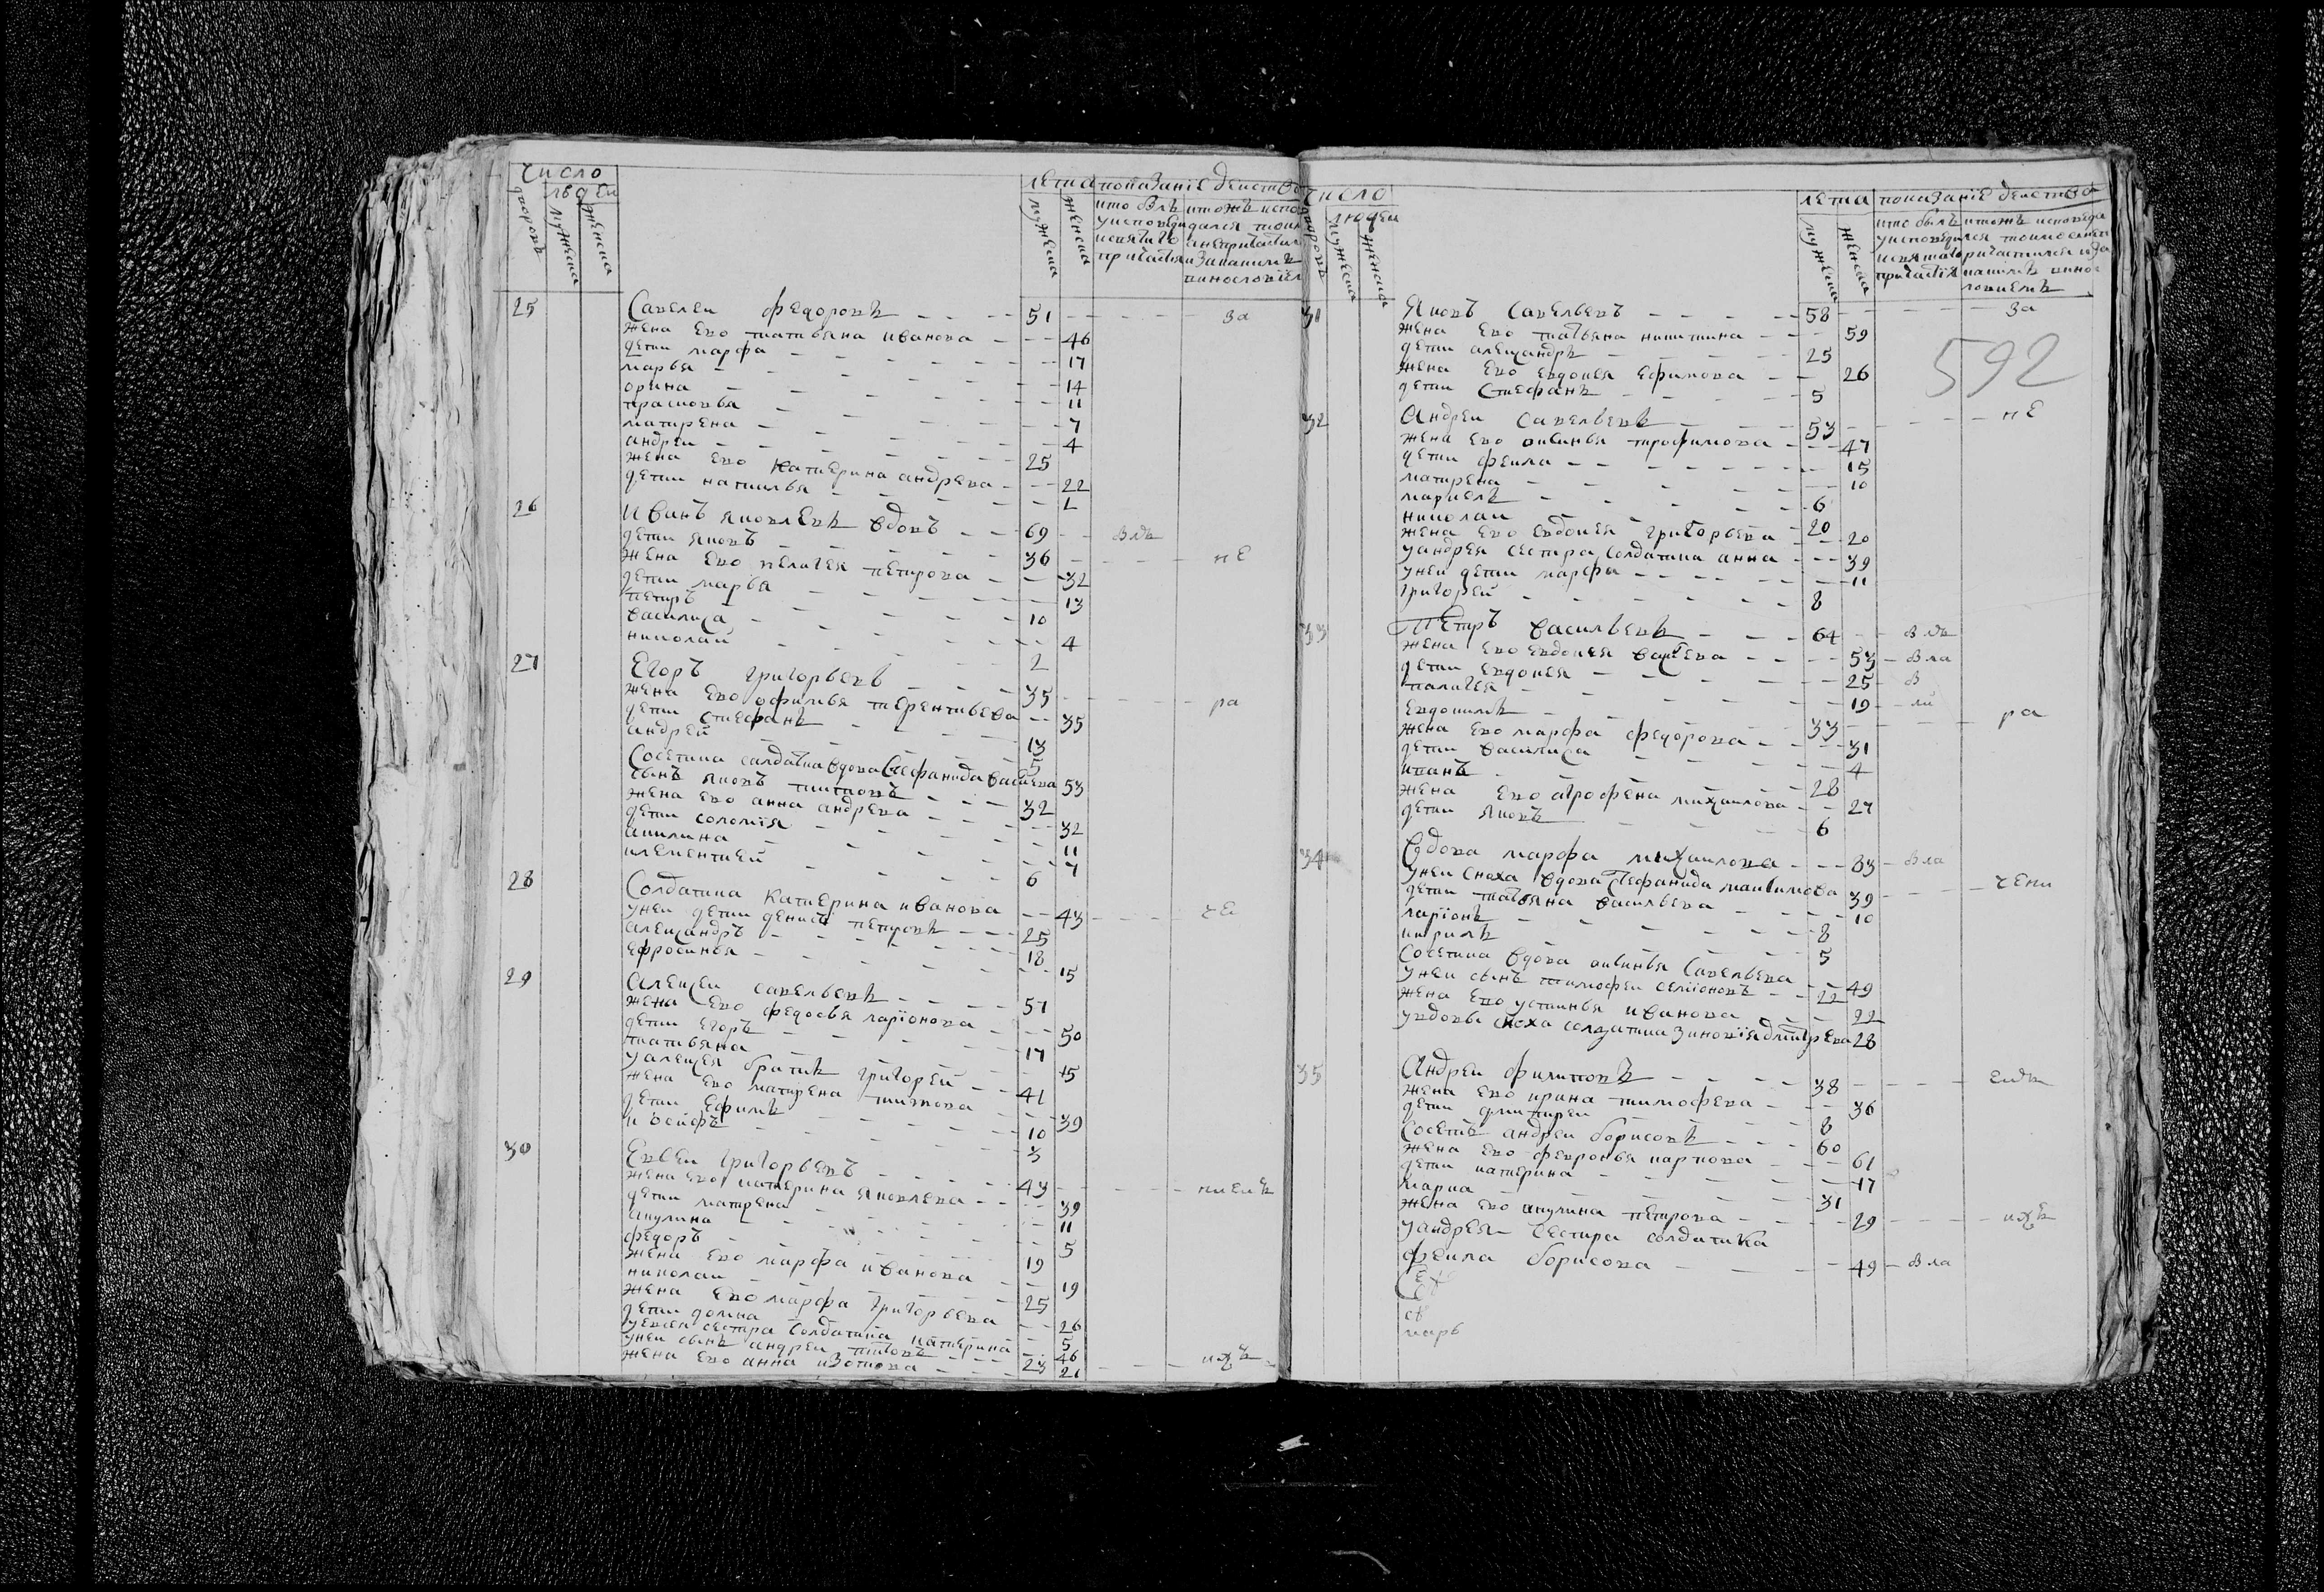 число
людей
дворовъ
мужеска
женска
лета
показанiе действа
мужеска
женска
кто былъ
у исповеди
и святаго
причастiя
25
Савелеи федоровъ 51 за
жена ево татьяна иванова 46
дети марфа 17
марья 14
орина 11
прасковья 7
матрена 4
андреи 25
жена ево катерина андрева 22
дети наталья 1
26
иванъ яковлевъ вдовъ 69 влъ
дети яковъ 36 не
жена ево пелагея петрова 32
дети марья 13
петръ 10
василиса 4
николаи 2
27
Егоръ григорьевъ 35 ра
жена ево офимья терентьева 35
дети стефанъ 13
андреи 5
Соседка салдатка вдова стефанида васильева 53
сынъ яковъ титовъ 32
жена ево анна андрева 32
дети соломiя 11
акилина 7
клементеи 6
28
Солдатка катерина иванова 43 че
у неи дети денисъ петровъ 25
александръ 18
ефросинья 15
29
Алексеи савельевъ 51
жена ево федосья ларiонова 50
дети егоръ 17
татьяна 15
у алексея братъ григореи 41
жена ево матрена титова 39
дети ефимъ 10
иосифъ 3
30
Евсеи григорьевъ 43
жена ево катерина яковлева 39
дети матрена 11
акулина 5
федоръ 19
жена ево марфа иванова 19
николаи 25
жена ево марфа григорьева 26
дети домна 5
у евсея сестра солдатка катерина 46
у неи сынъ андреи титовъ 23 ихъ
жена ево анна изотова 21
число
людеи
дворовъ
мужеска
женска
лета
показанiе действа
мужеска
женска
кто былъ
у исповеди
и святаго
причастiя
31
Яковъ Савельевъ 58 за
жена ево татьяна никитина 59
дети александръ 25
жена ево евдокея ефимова 26
592
дети Стефанъ 5
32
Андреи Савельевъ 53 не
жена ево аксинья трофимова 47
дети фекла 15
матрена 10
маркелъ 6
николаи 20
жена ево евдокея григорьева 20
у андрея сестра солдатка анна 39
у неи дети марфа 11
григореи 8
33
Петръ васильевъ 64 влъ
жена ево евдокея васильева 53 вла
дети евдокея 25 в
палагея 19
Евдокимъ 33 ра
жена ево марфа федорова 31
дети василиса 4
иванъ 28
жена ево агрофена михаилова 27
дети яковъ 6
34
Вдова марфа михаилова 83 вла
у неи сноха вдова стефанида максимова 39 чени
дети татьяна васильева 10
ларiонъ 8
кирилъ 5
Соседка вдова аксинья савельева 49
у неи сынъ тимофеи семiоновъ 22
жена ево устинья иванова 22
у вдовы сноха солдатка зиновiя дмитрева 28
35
Андреи филиповъ 38
жена ево ирина тимофева 36
дети дмитреи 8
Соседъ андреи борисовъ 60
жена ево февронья карпова 61
дети катерина 17
марка 31
жена ево акулина петрова 29 ихъ
у андрея сестра солдатка
фекла борисова 49 вла